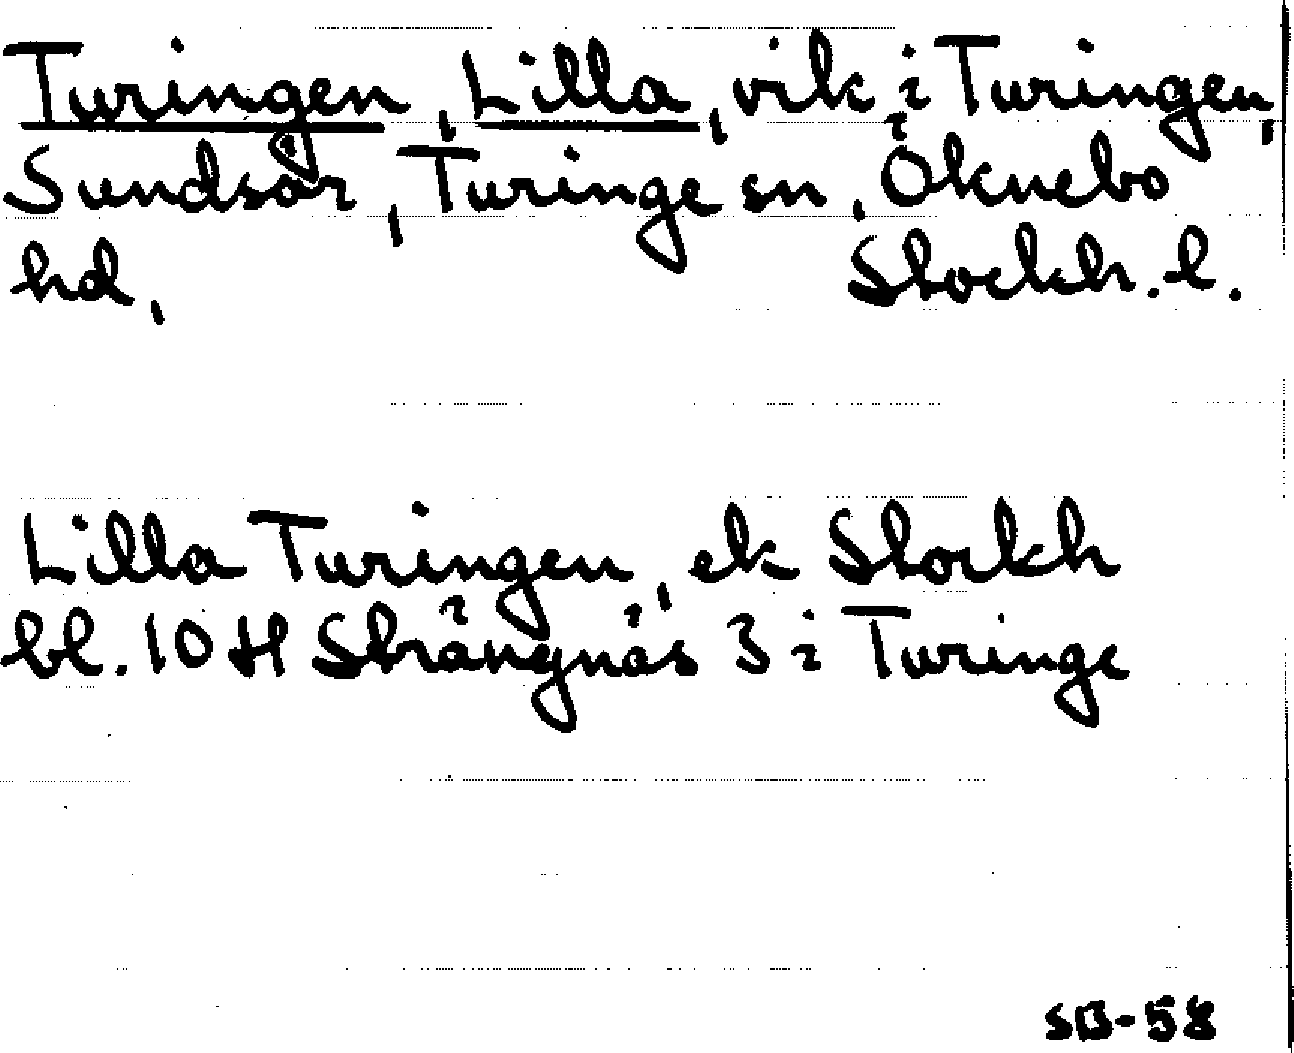 Turingen, Lilla, vik i Turingen,
Sundsör, Turinge sn, Öknebo
hd, Stockh. l.
Lilla Turingen, ek Stockh
bl. 10 H Strängnäs 3 i Turinge
SB-58